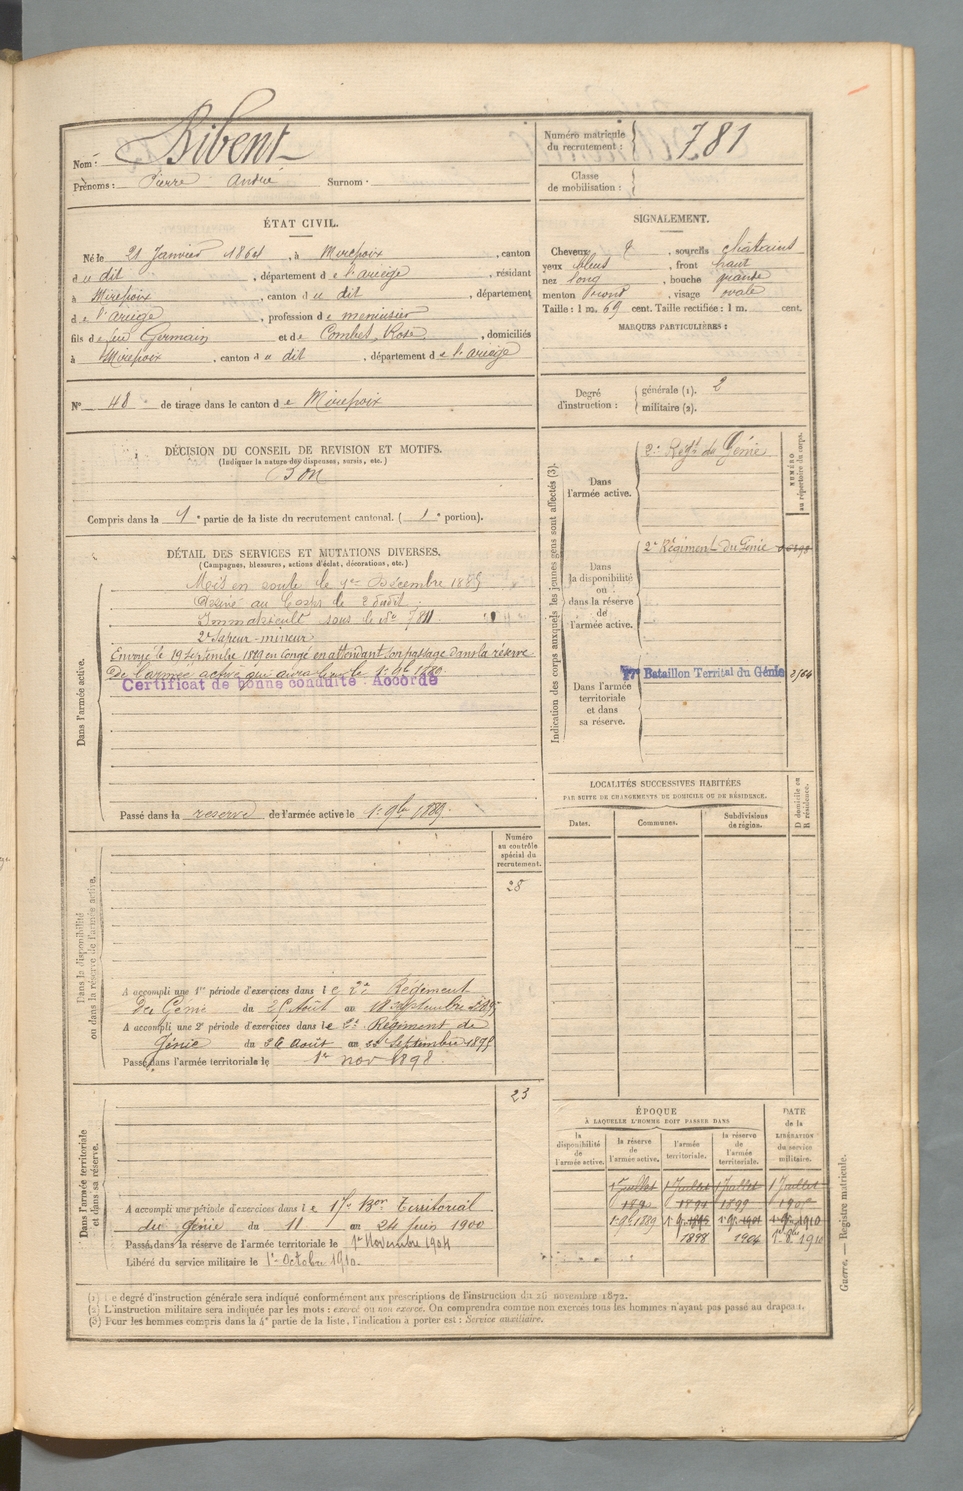 Nom : Bibent
Prénoms : Pierre André Surnom :
Numéro matricule du recrutement : 781
Classe de mobilisation :
ÉTAT CIVIL.
Né le 21 Janvier 1864, à Mirepoix, canton
d u dit, département d e l'ariège, résidant
à Mirepoix, canton d u dit, département
d e l'ariège, profession d e menuisier
fils d e feu Germain et d e Combes, Rose, domiciliés
à Mirepoix, canton d u dit, département d e l'ariège
N° 48 de tirage dans le canton d e Mirepoix
SIGNALEMENT.
Cheveux et, sourcils châtains
yeux bleus, front haut
nez long, bouche grande
menton rond, visage ovale
Taille : 1 m. 69 cent. Taille rectifiée : 1 m. cent.
MARQUES PARTICULIÈRES :
Degré d'instruction : générale (1). 2
militaire (2).
DÉCISION DU CONSEIL DE REVISION ET MOTIFS.
(Indiquer la nature des dispenses, sursis, etc.)
Bon
Compris dans la 1e partie de la liste du recrutement cantonal. ( 1e portion).
DÉTAIL DES SERVICES ET MUTATIONS DIVERSES.
(Campagnes, blessures, actions d'éclat, décorations, etc.)
Dans l'armée active.
Mis en route le 1er Décembre 1885
Arrivé au Corps le 2 dudit
Immatriculé sous le No 7811
2e Sapeur-mineur
Envoyé le 19 Septembre 1889 en congé en attendant son passage dans la réserve
De l'armée active qui aura lieu le 1er 9bre 1889
Certificat de bonne conduite : Accordé
Passé dans la reserve de l'armée active le 1er 9bre 1889.
Indication des corps auxquels les jeunes gens sont affectés (3).
NUMÉRO au répertoire du corps.
Dans l'armée active.
2e Regt du Génie
Dans la disponibilité ou dans la réserve de l'armée active.
2e Régiment du Génie
Dans l'armée territoriale et dans sa réserve.
17e Bataillon Territal du Génie
LOCALITÉS SUCCESSIVES HABITÉES
PAR SUITE DE CHANGEMENTS DE DOMICILE OU DE RÉSIDENCE.
Dates. Communes. Subdivisions de région.
D domicile ou R résidence.
Dans la disponibilité ou dans la réserve de l'armée active.
Numéro au contrôle spécial du recrutement.
28
A accompli une 1re période d'exercices dans l e 2e Régiment
du Génie du Août au Septembre
A accompli une 2e période d'exercices dans l e 2e Régiment de
Génie du 26 août au Septembre 1895
Passé dans l'armée territoriale le 1er nov 1898
Dans l'armée territoriale et dans sa réserve.
23
A accompli une période d'exercices dans l e 17e Bon Territorial
du Génie du 11 au 24 Juin 1900
Passé dans la réserve de l'armée territoriale le 1er Novembre 1904
Libéré du service militaire le 1er Octobre 1910.
ÉPOQUE
À LAQUELLE L'HOMME DOIT PASSER DANS
DATE de la LIBÉRATION du service militaire.
la disponibilité de l'armée active. la réserve de l'armée active. l'armée territoriale. la réserve de l'armée territoriale.
1 Juillet 1 Juillet 1 Juillet 1 Juillet
1899
1er 9b 1889
1898 1904 1910
(1) Le degré d'instruction générale sera indiqué conformément aux prescriptions de l'instruction du 26 novembre 1872.
(2) L'instruction militaire sera indiquée par les mots : exercé ou non exercé. On comprendra comme non exercés tous les hommes n'ayant pas passé au drapeau.
(3) Pour les hommes compris dans la 4e partie de la liste, l'indication à porter est : Service auxiliaire.
Guerre. — Registre matricule.